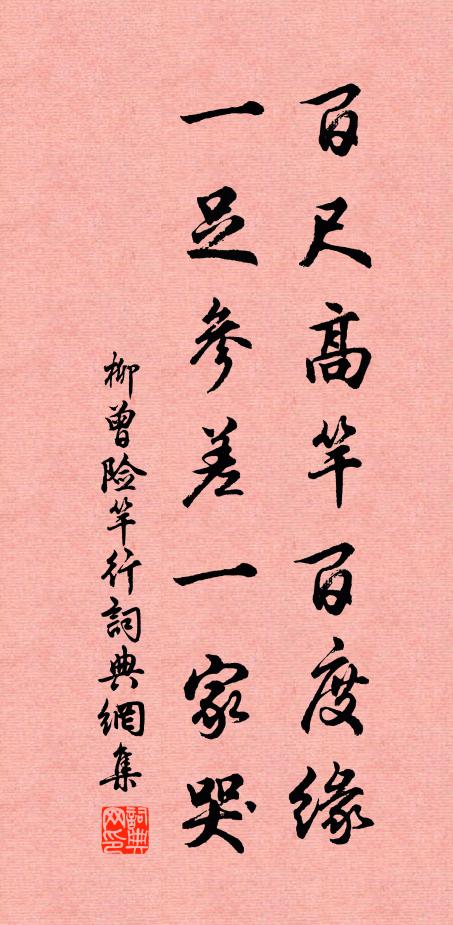 百尺高竿百度緣
一足參差一家哭
柳曾险竿行詞典網集
詞典网印